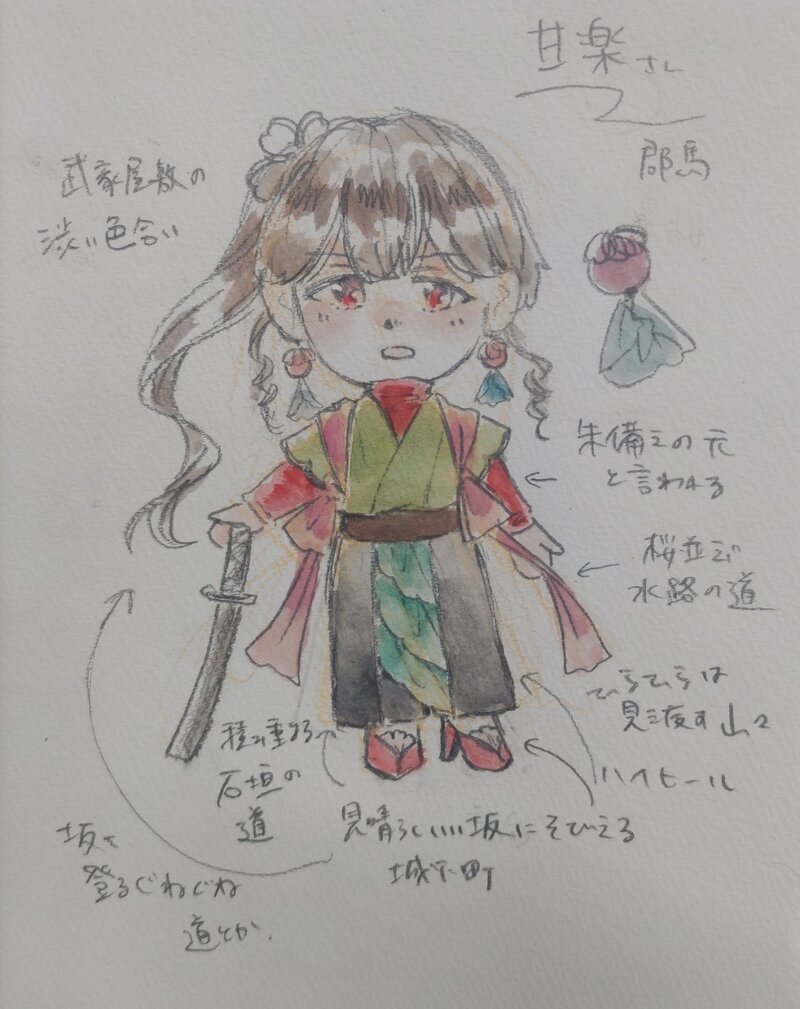 甘楽さん
郡馬
武家屋敷の
渋い色合い
朱備えの元
と言われる
桜並び
水路の道
ひらひらは
見渡す山々
ハイヒール
積み重なる
石垣の
道
見晴らしいい坂にそびえる
城下町
坂を
登るぐねぐね
道とか.